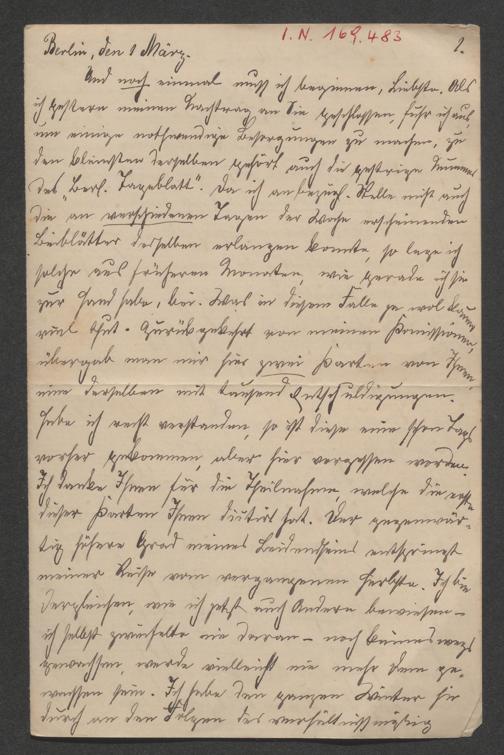 I. N. 169.483
1.
Berlin, den 1 März.
Und noch einmal muß ich beginnen, Liebste. Als
ich gestern meinen Nachtrag an Sie geschlossen, fuhr ich aus,
um einige nothwendige Besorgungen zu machen, zu
den kleinsten derselben gehört auch die gestrige Nummer
des "Berl. Tageblatt". Da ich an bezügl. Stelle nicht auch
die an verschiedenen Tagen der Woche erscheinenden
Beiblätter desselben erlangen konnte, so lege ich
solche aus früheren Monaten, wie gerade ich sie
zur Hand habe, bei. Was in diesem Falle ja wol kaum
viel thut. Zurückgekehrt von meinen Kommissionen,
übergab man mir hier zwei Karten von Ihnen,
eine derselben mit tausend Entschuldigungen.
Habe ich recht verstanden, so ist diese eine schon Tags
vorher gekommen, aber hier vergessen worden.
Ich danke Ihnen für die Theilnahme, welche die erste
dieser Karten Ihnen dictirt hat. Der gegenwär-
tig höhere Grad meines Leidendseins entspringt
meiner Reise vom vergangenen Herbste. Ich bin
dergleichen, wie ich jetzt auch Andern bewiesen –
ich selbst zweifelte nie daran – noch keineswegs
gewachsen, werde vielleicht nie mehr dem ge-
wachsen sein. Ich habe den ganzen Winter hin
durch an den Folgen des verhältnißmäßig